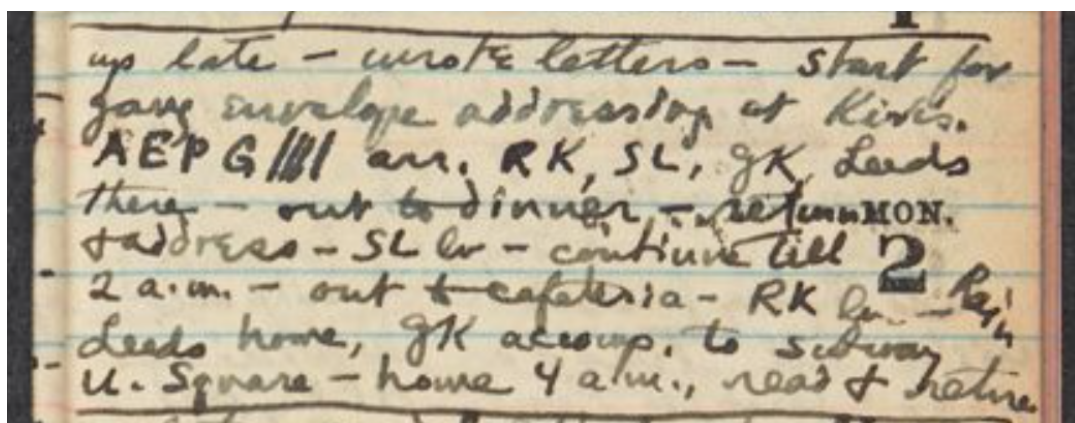 up late – wrote letters – start for
gang envelope addressing at Kirks.
AEPG //// arr. RK, SL, GK, Leeds
there – out to dinner – return MON.
& address – SL lv – continue till 2
2 a.m. – out to cafeteria – RK lv. – Rain
Leeds home, GK accomp. to subway
U. Square – home 4 a.m., read & retire